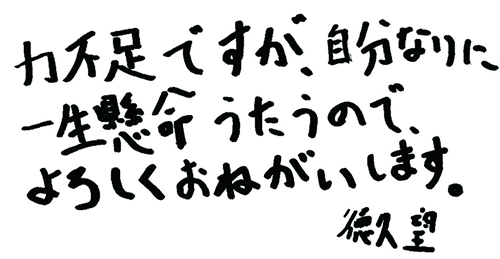 力不足ですが、自分なりに
一生懸命うたうので、
よろしくおねがいします。
徳久望